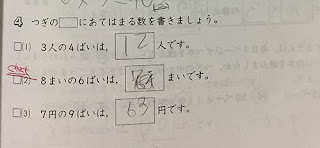 4) つぎの□にあてはまる数を書きましょう。
□(1) 3人の4ばいは、12人です。
check
□(2) 8まいの6ばいは、まいです。
□(3) 7円の9ばいは、63円です。